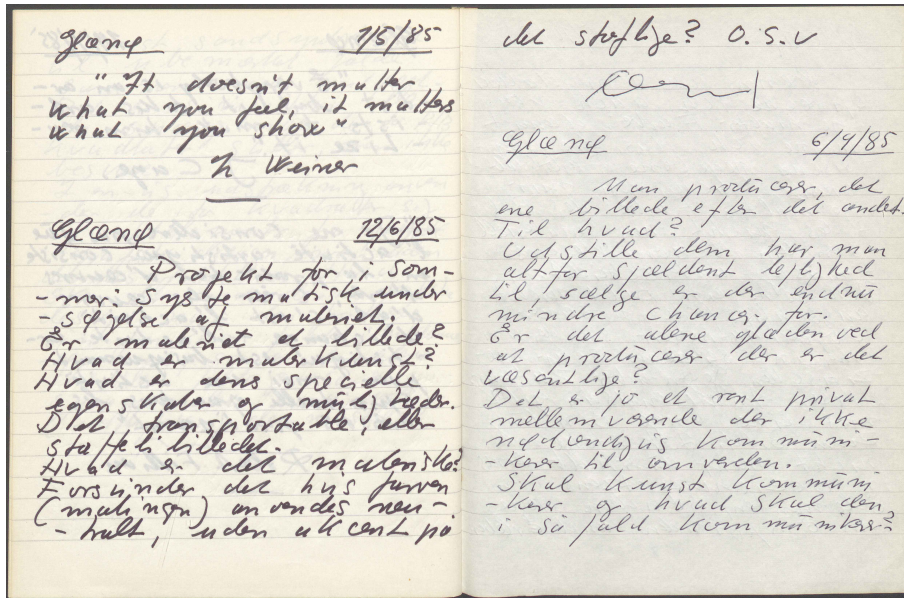 Gland 1/5/85
"It doesn't matter
what you feel, it matters
what you show"
L Weiner
Gland 12/6/85
Projekt for i som-
-mer. Systematisk under
-søgelse af maleriet.
Er maleriet et billede?
Hvad er malerkunst?
Hvad er dens specielle
egenskaber og muligheder.
Det transportable, eller
staffelibilledet.
Hvad er det maleriske?
Forsvinder det hvis farven
(malingen) anvendes neu-
-tralt, uden akcent på
det stoflige? O.S.V
Gland 6/9/85
Man producerer, det
ene billede efter det andet.
Til hvad?
Udstille dem har man
altfor sjældent lejlighed
til, sælge er der endnu
mindre chance for.
Er det alene glæden ved
at producerer der er det
væsentlige?
Det er jo et rent privat
mellemværende der ikke
nødvendigvis kommuni-
-kerer til omverden.
Skal kunst kommuni
-kerer og hvad skal den
i så fald kommunikerer?